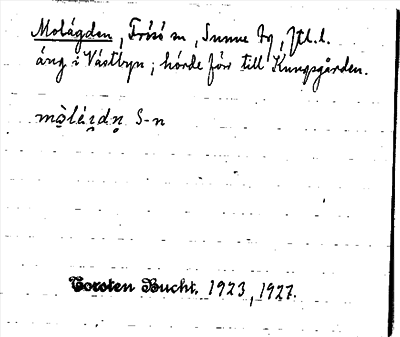 Molägden, Frösö sn, Sunne tg, Jtl. l.
äng i Västbyn; hörde förr till Kungsgården.
S-n
Torsten Bucht. 1923, 1927.